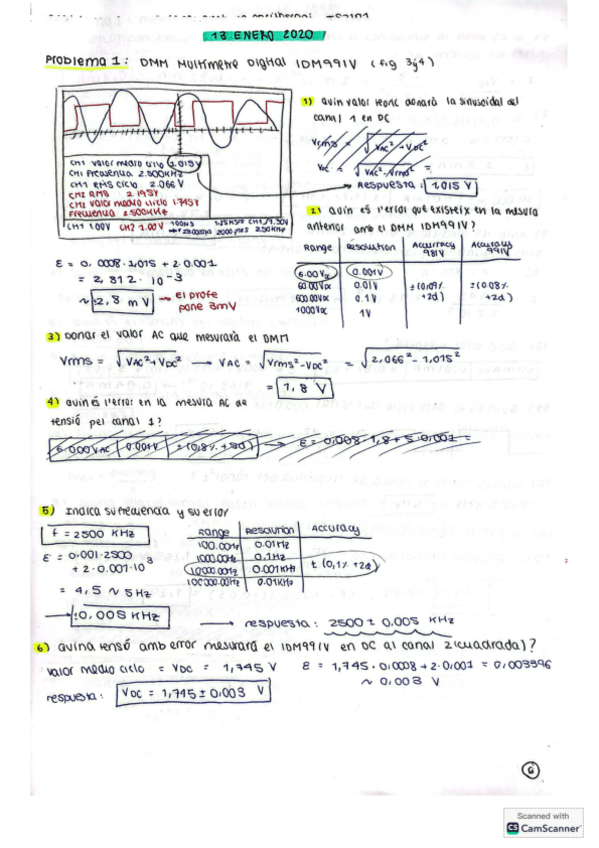 13 ENERO 2020
Problema 1: DMM Multimetre Digital IDM991V (fig 3y4)
1) Quin valor teoric donarà la sinusoidal del
canal 1 en DC
Vrms = √VAC²+VDC²
VDC = √VAC²-Vrms² =
RESPUESTA: 1,015 V
CH1 Valor medio ciclo 1.015V
CH1 Frecuencia 2.500KHz
CH1 RMS ciclo 2.066 V
CH2 RMS 2.195V
CH2 valor medio ciclo 1.745V
Frecuencia 2.500KHz
CH1 1.00V CH2 1.00V
2) Quin és l'error que existeix en la mesura
anterior amb el DMM IDM991V?
Range Resolution Accuracy 981V Accuracy 991V
6.00 VDC 0.001V
60.00 VDC 0.01V ±(0.09% +2d) ±(0.08% +2d)
600.00 VDC 0.1V
1000 VDC 1V
ε = 0.0008·1,015 + 2·0.001
= 2,812 · 10⁻³
~ ±2,8 mV → el profe
pone 3mV
3) Donar el valor AC que mesurarà el DMM
Vrms = √VAC²+VDC² → VAC = √Vrms²-VDC² = √2,066² - 1,015²
= 1,8 V
4) Quin és l'error en la mesura AC de
tensió pel canal 1?
6.000 VAC 0.001V ±(0.8% +5d) → ε = 0.008·1,8+5·0.001 =
5) Indica su frecuencia y su error
f = 2500 KHz
Range Resolution Accuracy
100.00Hz 0.01Hz
1000.0Hz 0.1Hz
10000.00Hz 0.001KHz ±(0,1% +2d)
100000.00Hz 0.01KHz
ε = 0.001·2500
+ 2·0.001·10³
= 4,5 ~ 5Hz
→ ±0.005 KHz
→ respuesta: 2500 ± 0.005 KHz
6) Quina tensó amb error mesurarà el IDM991V en DC al canal 2 (cuadrada)?
Valor medio ciclo = VDC = 1,745 V ε = 1,745·0,0008+2·0.001 = 0,003396
~ 0,003 V
respuesta: VDC = 1,745 ± 0,003 V
6
Scanned with
CS CamScanner